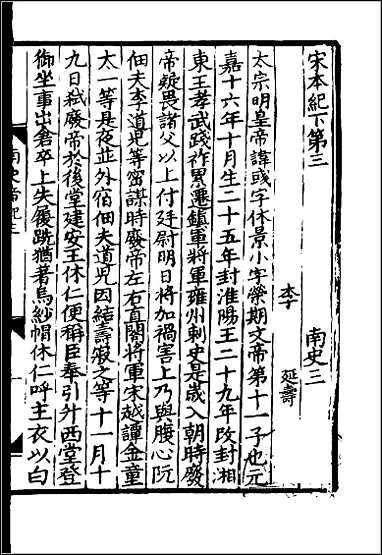 宋本紀下第三　南史三
李　延壽
太宗明皇帝諱彧字休景小字榮期文帝第十一子也元
嘉十六年十月生二十五年封淮陽王二十九年改封湘
東王孝武踐祚累遷鎮軍將軍雍州刺史是歲入朝時廢
帝疑畏諸父以上付廷尉明日將加禍害上乃與腹心阮
佃夫李道兒等密謀時廢帝左右直閤將軍宋越譚金童
太一等是夜並外宿佃夫道兒因結壽寂之等十一月十
九日弒廢帝於後堂建安王休仁便稱臣奉引升西堂登
御坐事出倉卒上失履跣猶著烏紗帽休仁呼主衣以白
南史帝紀三